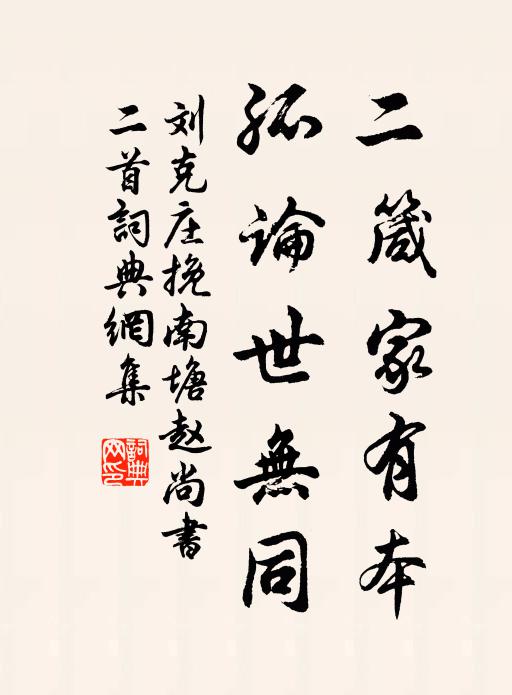 二箴家有本
孤論世無同
刘克庄挽南塘赵尚書
二首詞典網集
詞典網印